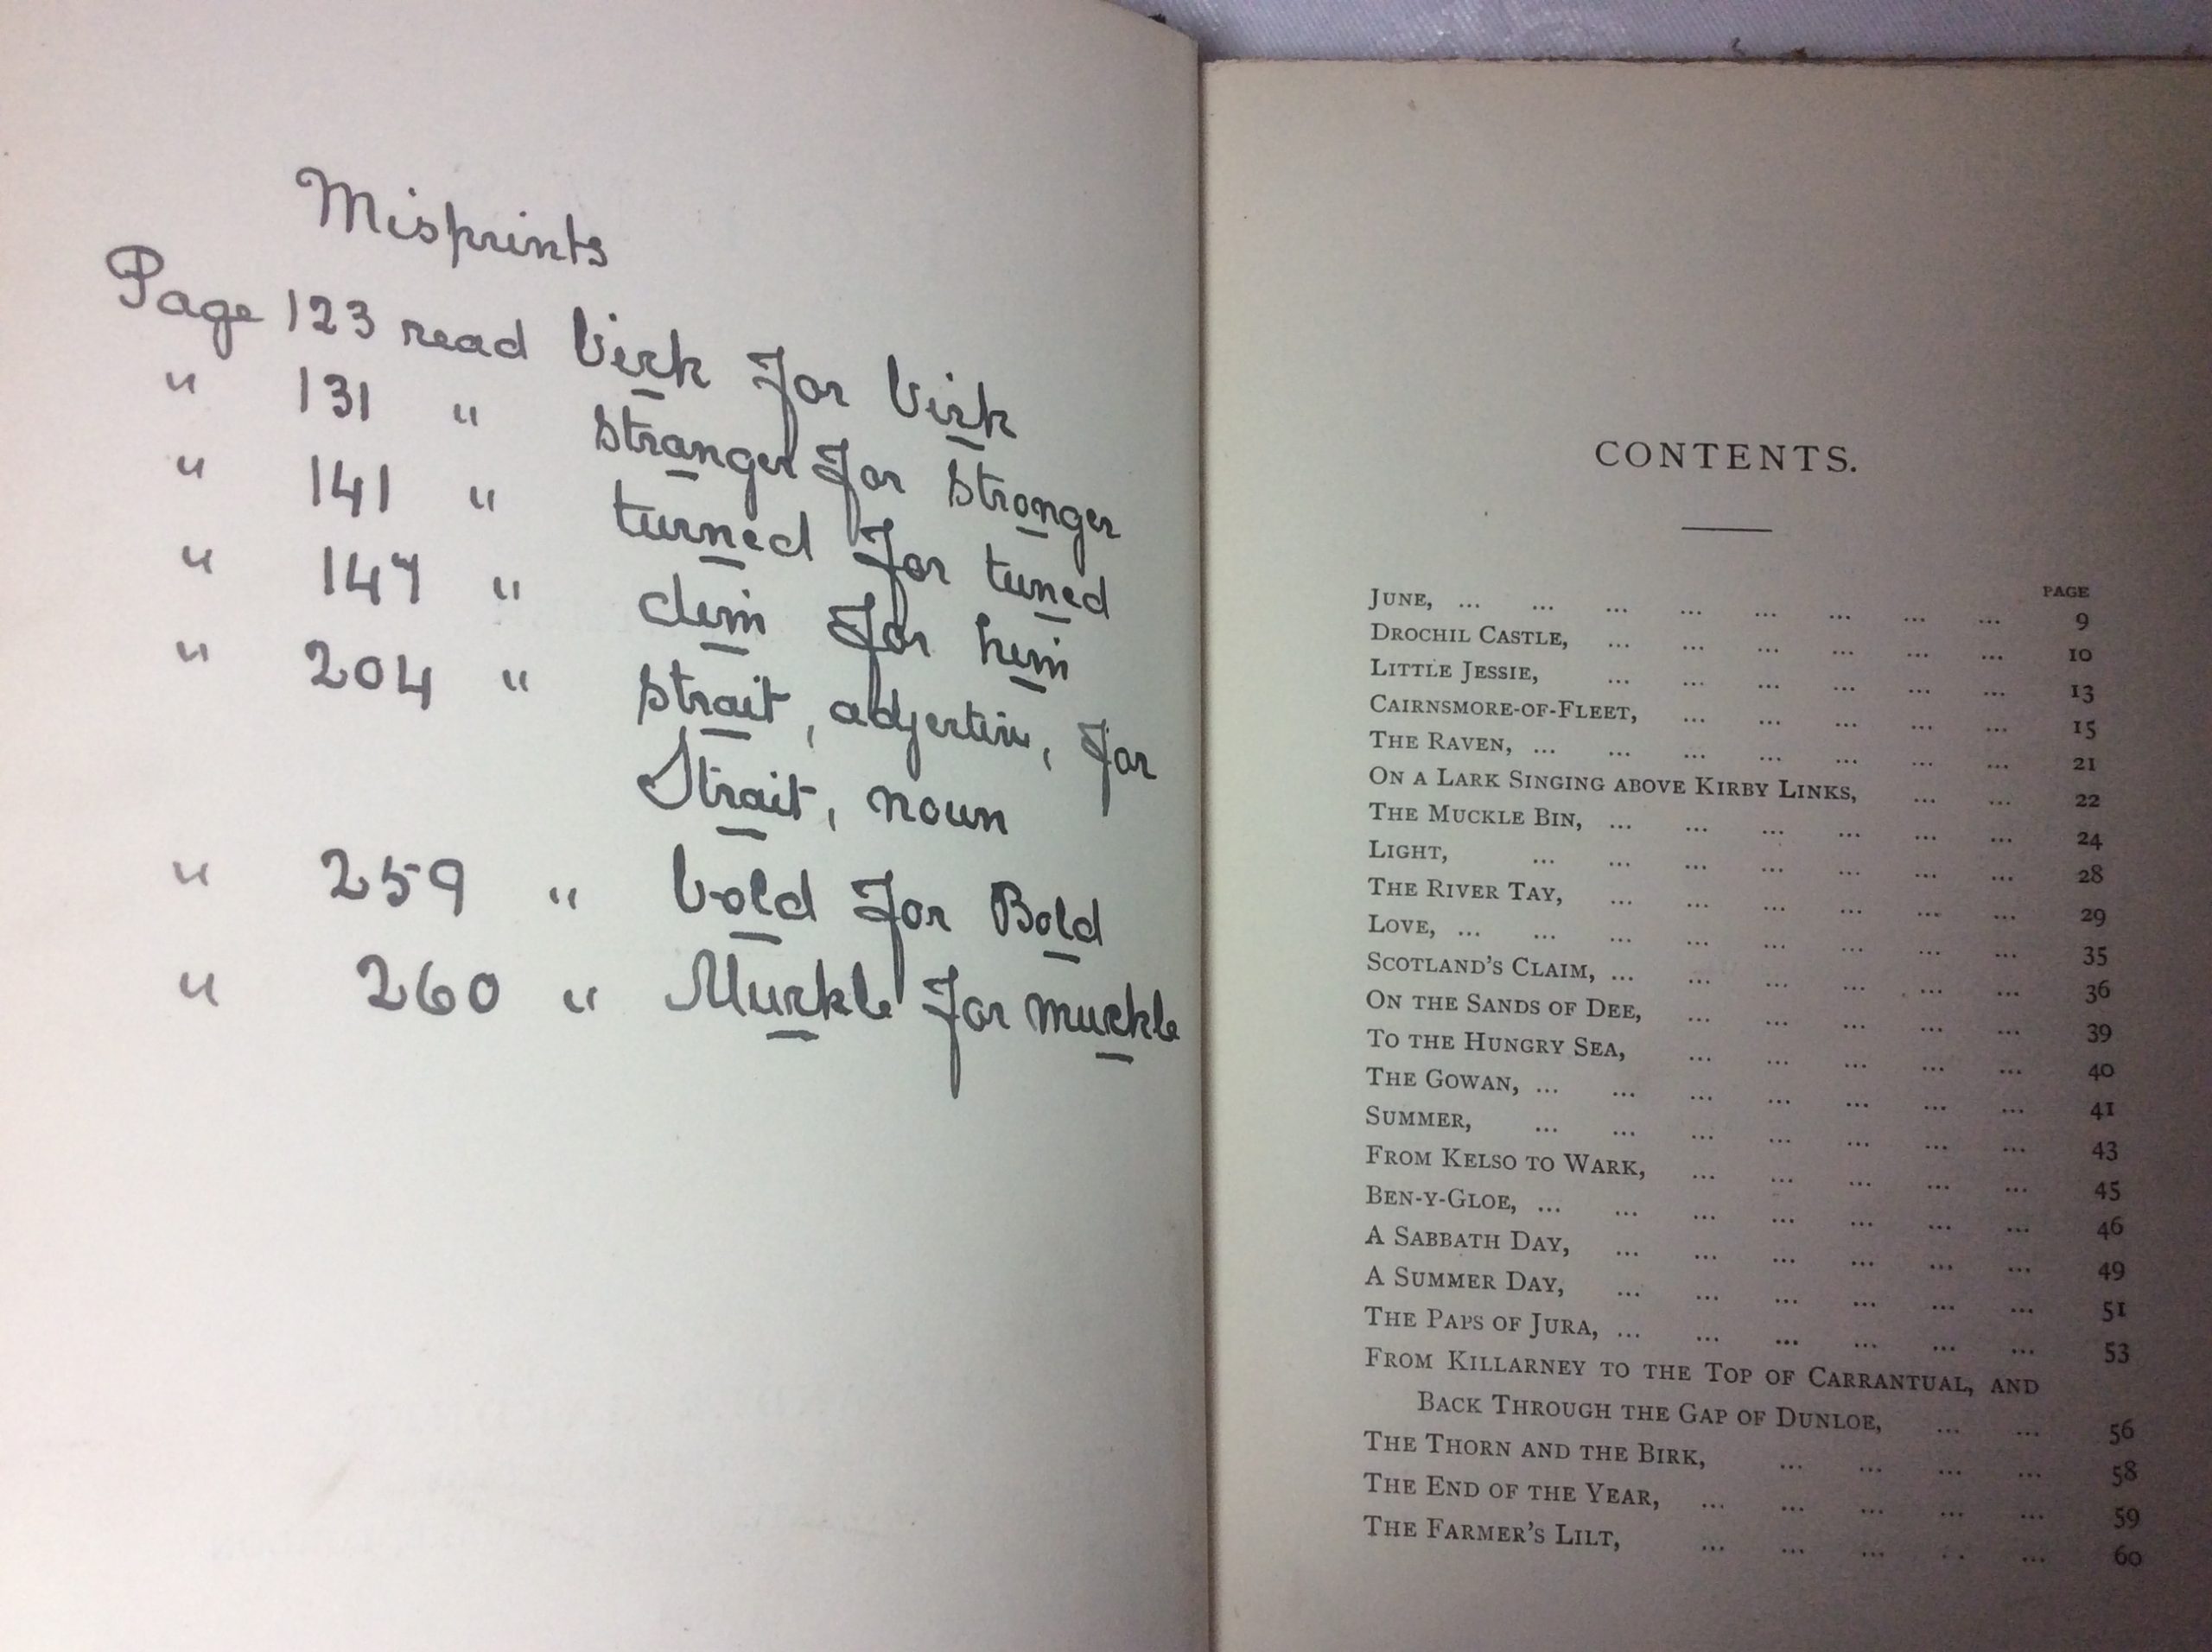 Misprints
Page 123 read for
" 131 " stranger for stronger
" 141 " turned for tuned
" 147 " dim for him
" 204 " strait, adjective, for
Strait, noun
" 259 " bold for Bold
" 260 " Muckle for muckle
CONTENTS.
PAGE
JUNE, ... ... ... ... ... ... ... ... 9
DROCHIL CASTLE, ... ... ... ... ... ... 10
LITTLE JESSIE, ... ... ... ... ... ... 13
CAIRNSMORE-OF-FLEET, ... ... ... ... ... 15
THE RAVEN, ... ... ... ... ... ... ... 21
ON A LARK SINGING ABOVE KIRBY LINKS, ... ... 22
THE MUCKLE BIN, ... ... ... ... ... ... 24
LIGHT, ... ... ... ... ... ... ... 28
THE RIVER TAY, ... ... ... ... ... ... 29
LOVE, ... ... ... ... ... ... ... ... 35
SCOTLAND'S CLAIM, ... ... ... ... ... ... 36
ON THE SANDS OF DEE, ... ... ... ... ... 39
TO THE HUNGRY SEA, ... ... ... ... ... 40
THE GOWAN, ... ... ... ... ... ... ... 41
SUMMER, ... ... ... ... ... ... ... 43
FROM KELSO TO WARK, ... ... ... ... ... 45
BEN-Y-GLOE, ... ... ... ... ... ... ... 46
A SABBATH DAY, ... ... ... ... ... ... 49
A SUMMER DAY, ... ... ... ... ... ... 51
THE PAPS OF JURA, ... ... ... ... ... ... 53
FROM KILLARNEY TO THE TOP OF CARRANTUAL, AND
BACK THROUGH THE GAP OF DUNLOE, ... ... 56
THE THORN AND THE BIRK, ... ... ... ... 58
THE END OF THE YEAR, ... ... ... ... ... 59
THE FARMER'S LILT, ... ... ... .. ... 60